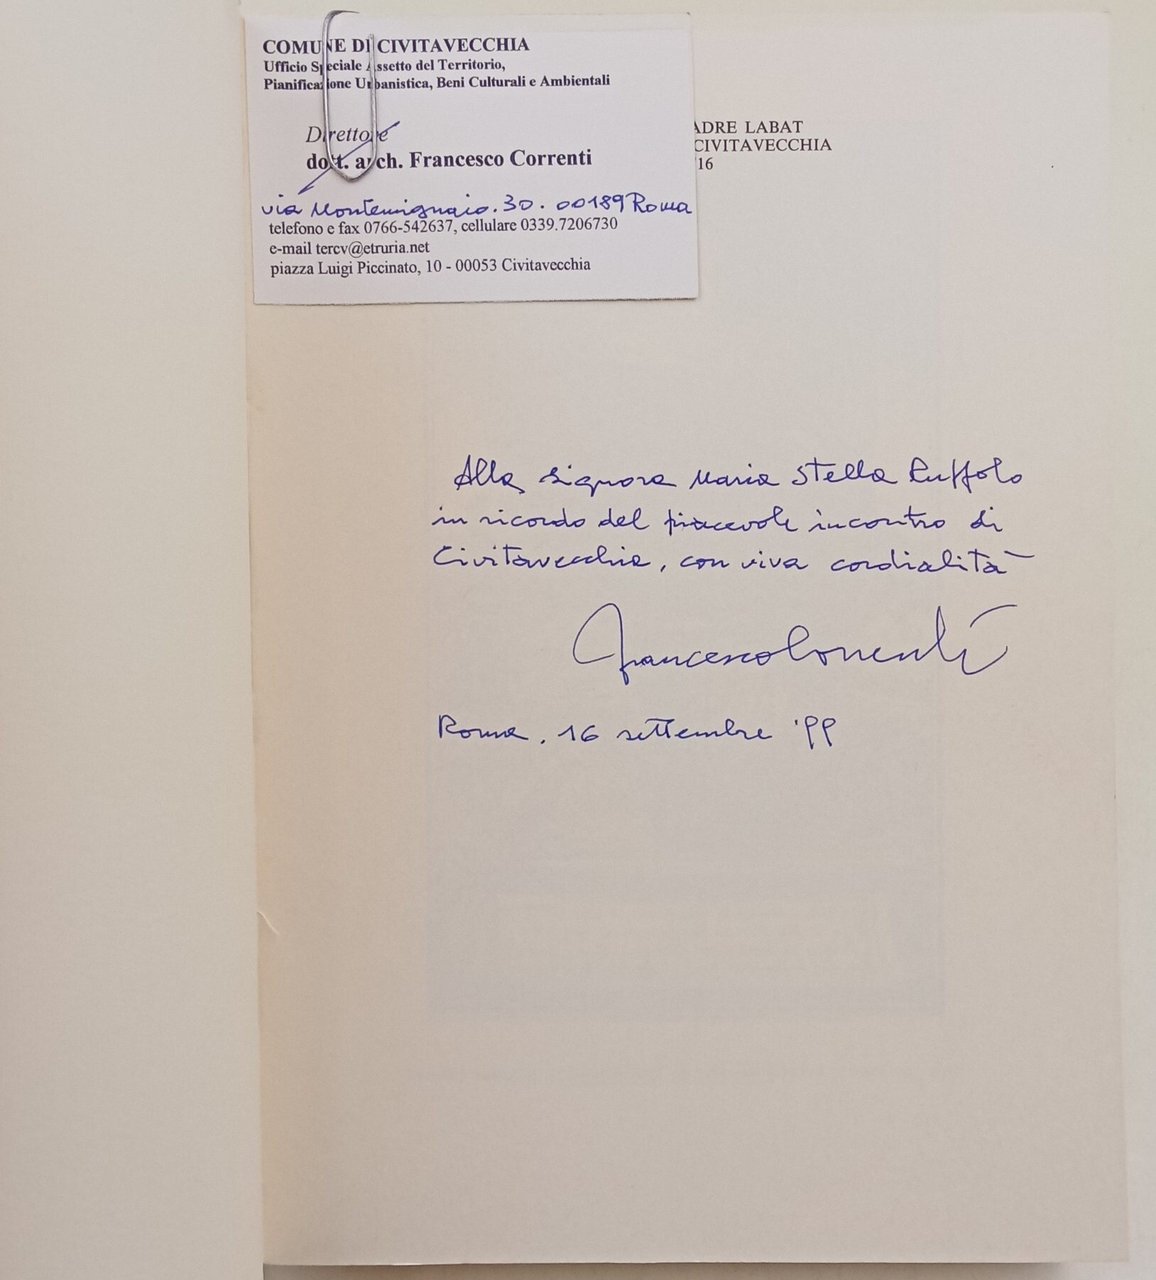 COMUNE DI CIVITAVECCHIA
Ufficio Speciale Assetto del Territorio,
Pianificazione Urbanistica, Beni Culturali e Ambientali
Direttore
dott. arch. Francesco Correnti
via Montemignaio. 30. 00189 Roma
telefono e fax 0766-542637, cellulare 0339.7206730
e-mail tercv@etruria.net
piazza Luigi Piccinato, 10 - 00053 Civitavecchia
ADRE LABAT
CIVITAVECCHIA
16
Alla signora Maria Stella Ruffolo
in ricordo del piacevole incontro di
Civitavecchia, con viva cordialità
Francesco Correnti
Roma, 16 settembre '99